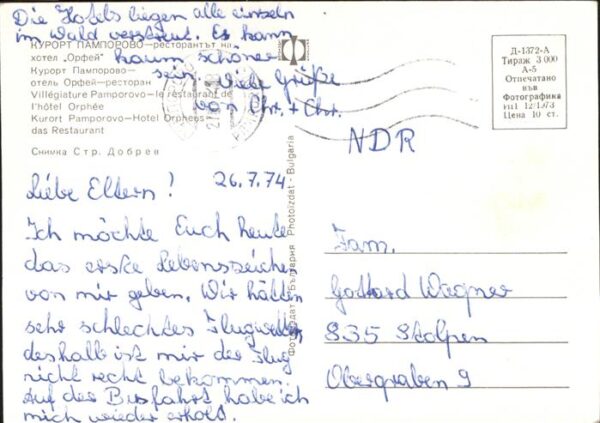 Die Hotels liegen alle einzeln
im Wald verstreut. Es kann
kaum schöner
sein. Viele Grüße
von Chr. + Chr.
КУРОРТ ПАМПОРОВО—ресторантът на
хотел „Орфей"
Курорт Пампорово—
отель Орфей—ресторан
Villégiature Pamporovo—le restaurant de
l'hôtel Orphée
Kurort Pamporovo—Hotel Orpheus
das Restaurant
Снимка Стр. Добрев
Liebe Eltern! 26.7.74
Ich möchte Euch heute
das erste Lebenszeichen
von mir geben. Wir hatten
sehr schlechtes Flugwetter
deshalb ist mir der Flug
nicht recht bekommen.
Auf der Busfahrt habe ich
mich wieder erholt.
Фотоиздат - България Photoizdat - Bulgaria
Д-1372-А
Тираж 3 000
А-5
Отпечатано
във
Фотографика
ИП 12/1.73
Цена 10 ст.
NDR
Fam.
Gothard Wagner
835 Stolpen
Obergraben 9